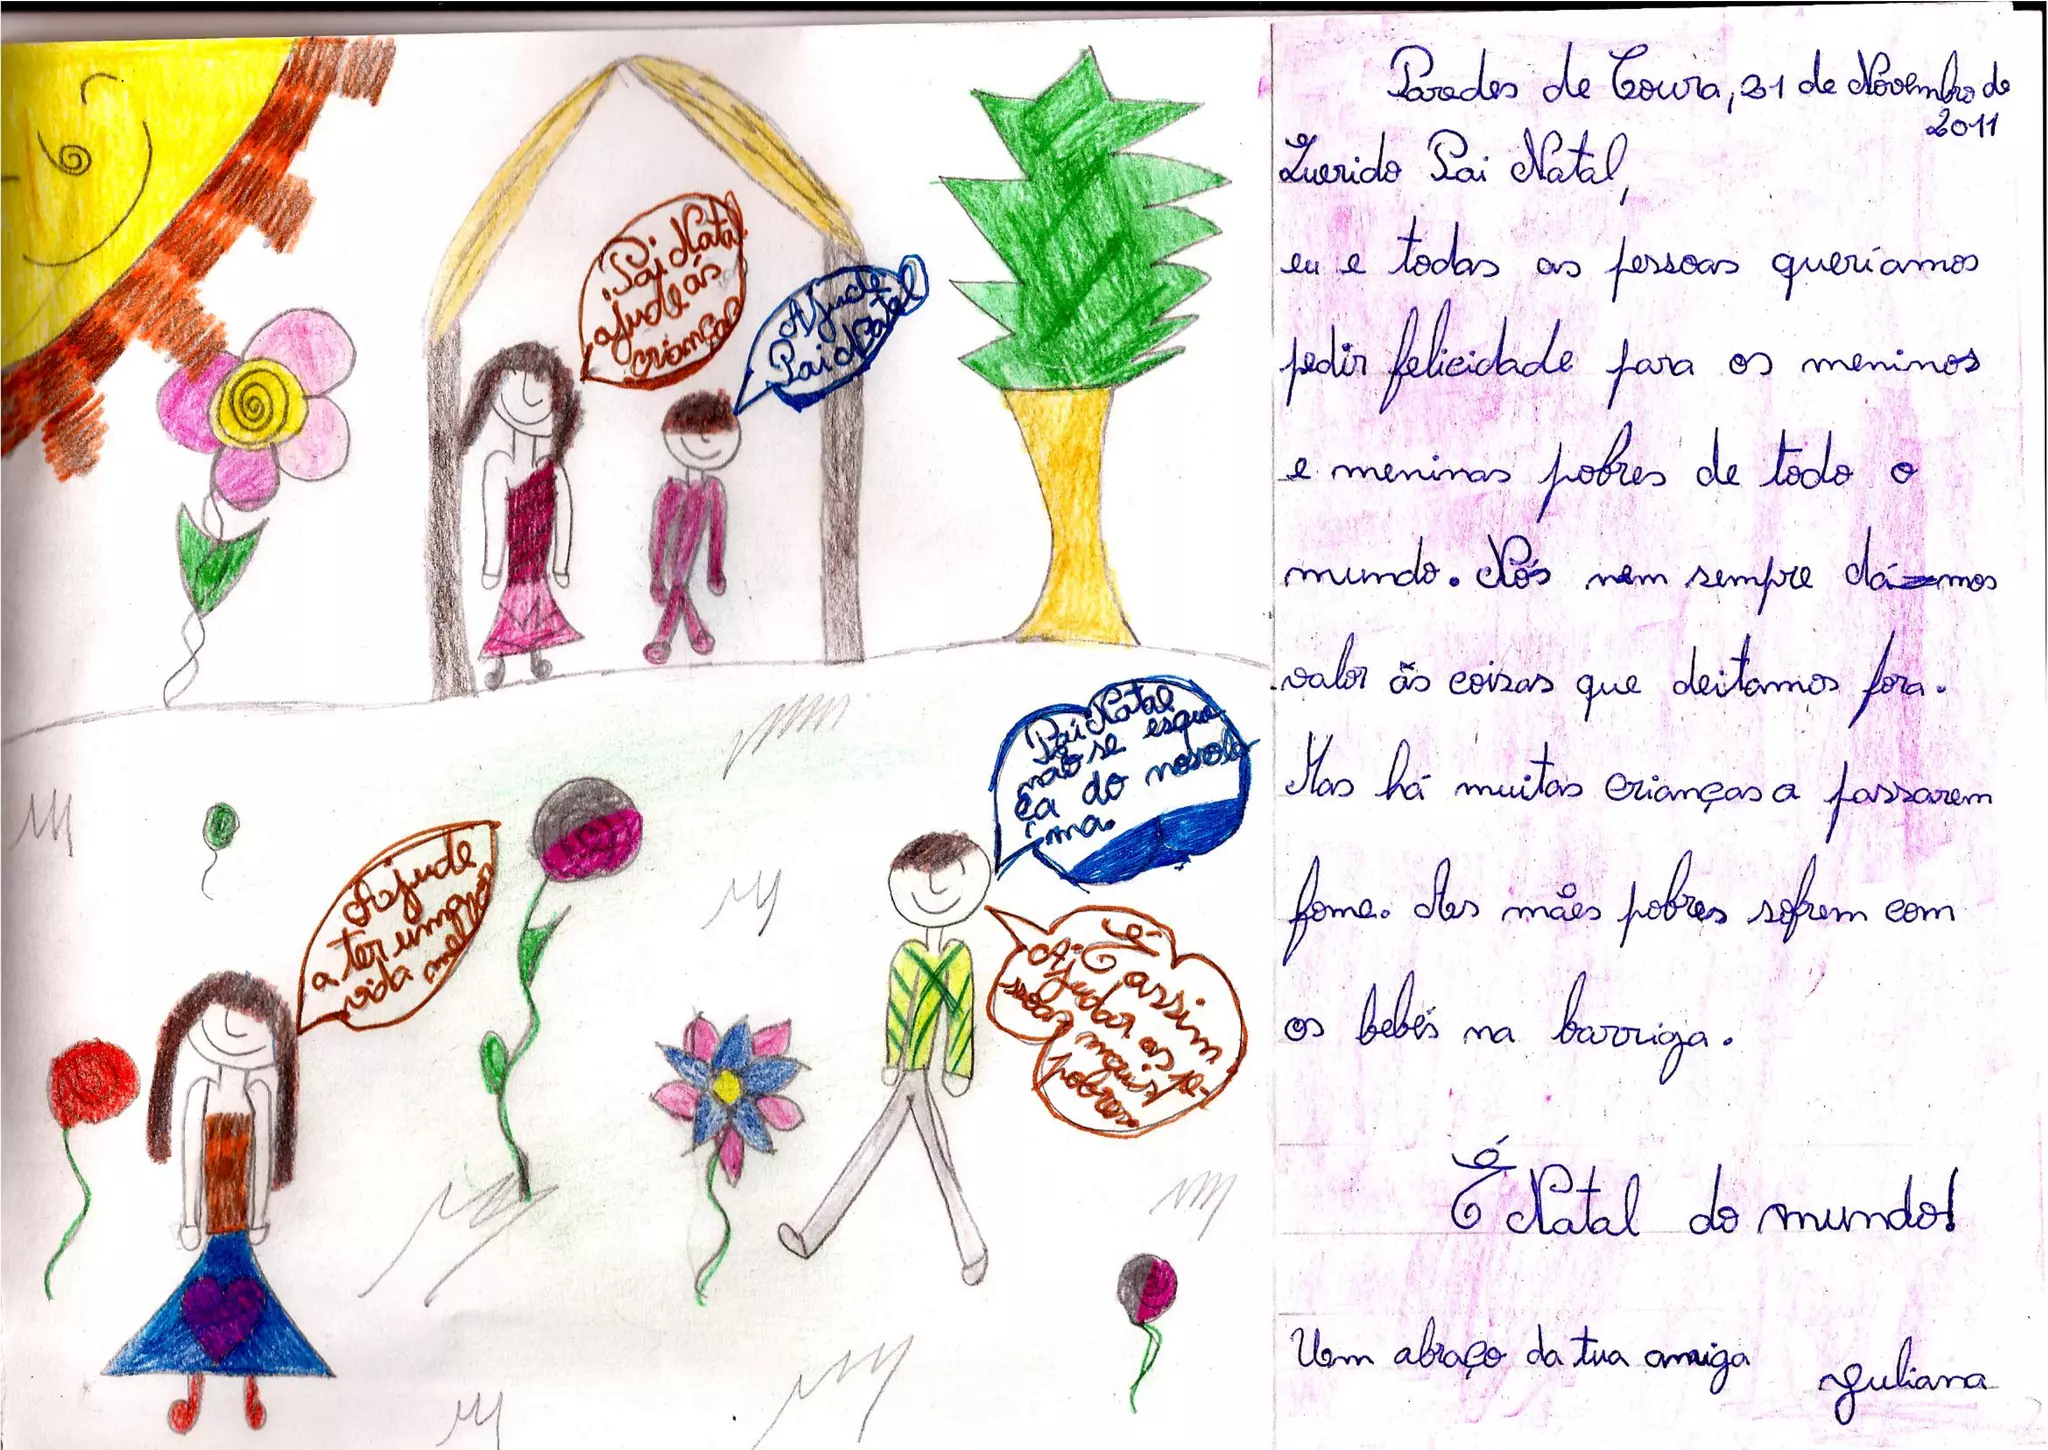 Pai Natal
ajude ás
crianças
Ajude
Pai Natal
Pai Natal
não se esque
ça do nosso
Ajude
a ter uma
vida mel
É assim
Ajudar as pe-
ssoas mais
pobres
Paredes de Coura, 21 de Novembro de
2011
Querido Pai Natal,
eu e todas as pessoas queríamos
pedir felicidade para os meninos
e meninas pobres de todo o
mundo. Nós nem sempre dá-mos
valor ás coizas que deitamos fora.
Mas há muitas crianças a passarem
fome. As mães pobres sofrem com
os bebés na barriga.
É Natal do mundo!
Um abraço da tua amiga
Juliana